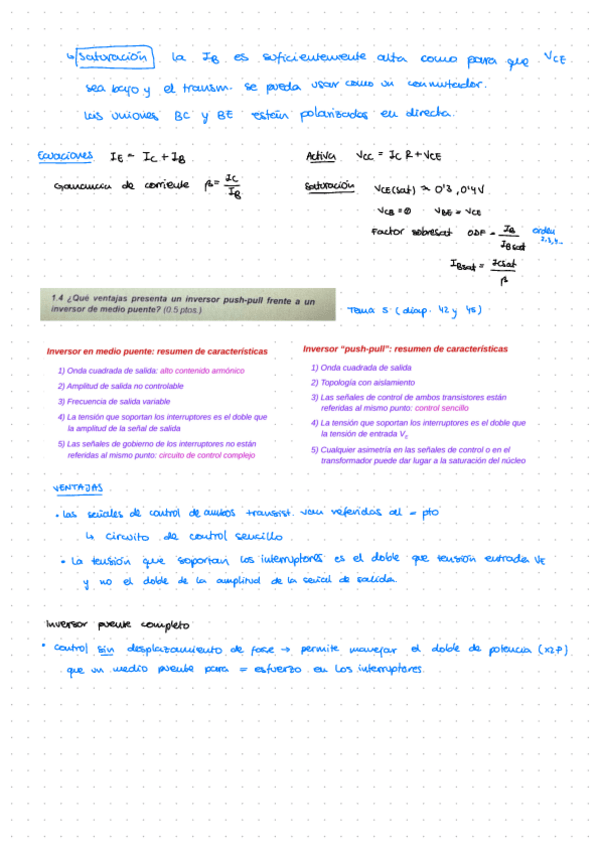 ↳ Saturación la IB es suficientemente alta como para que VCE
sea bajo y el transm. se pueda usar como un conmutador.
Las uniones BC y BE están polarizadas en directa.
Ecuaciones IE = IC + IB
Ganancia de corriente β = IC / IB
Activa VCC = IC R + VCE
Saturación VCE(sat) ≈ 0'3, 0'4V
VCB = 0 VBE = VCE
Factor sobresat ODF = IB / IBsat orden 2,3,4..
IBsat = ICsat / β
1.4 ¿Qué ventajas presenta un inversor push-pull frente a un
inversor de medio puente? (0.5 ptos.)
Tema 5 (diap. 42 y 45)
Inversor en medio puente: resumen de características
1) Onda cuadrada de salida: alto contenido armónico
2) Amplitud de salida no controlable
3) Frecuencia de salida variable
4) La tensión que soportan los interruptores es el doble que
la amplitud de la señal de salida
5) Las señales de gobierno de los interruptores no están
referidas al mismo punto: circuito de control complejo
Inversor “push-pull”: resumen de características
1) Onda cuadrada de salida
2) Topología con aislamiento
3) Las señales de control de ambos transistores están
referidas al mismo punto: control sencillo
4) La tensión que soportan los interruptores es el doble que
la tensión de entrada VE
5) Cualquier asimetría en las señales de control o en el
transformador puede dar lugar a la saturación del núcleo
VENTAJAS
• Las señales de control de ambos transist. van referidas al = pto
↳ circuito de control sencillo
• La tensión que soportan los interruptores es el doble que tensión entrada VE
y no el doble de la amplitud de la señal de salida.
Inversor puente completo
• Control sin desplazamiento de fase → permite manejar el doble de potencia (x2P)
que un medio puente para = esfuerzo en los interruptores.